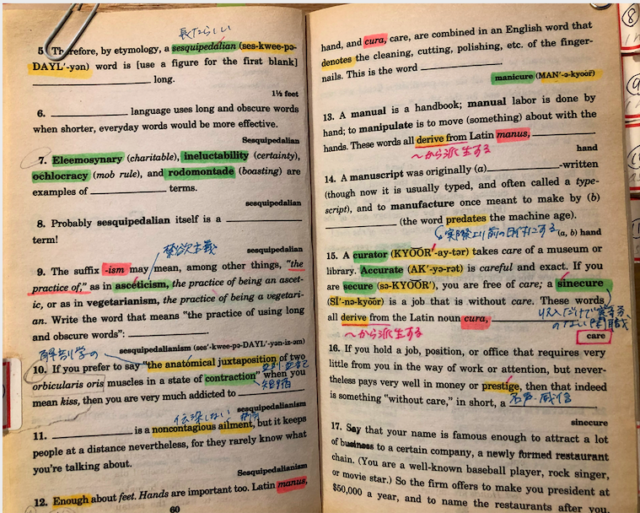 長たらしい
5. Therefore, by etymology, a sesquipedalian (ses-kwee-pə-
DAYL'-yən) word is [use a figure for the first blank]
____ long.
1½ feet
6. ____ language uses long and obscure words
when shorter, everyday words would be more effective.
Sesquipedalian
7. Eleemosynary (charitable), ineluctability (certainty),
ochlocracy (mob rule), and rodomontade (boasting) are
examples of ____ terms.
sesquipedalian
8. Probably sesquipedalian itself is a ____
term!
sesquipedalian
禁欲主義
9. The suffix -ism may mean, among other things, "the
practice of," as in asceticism, the practice of being an ascet-
ic, or as in vegetarianism, the practice of being a vegetari-
an. Write the word that means "the practice of using long
and obscure words": ____
sesquipedalianism (ses'-kwə-PED'-ə-lə-yən-is-əm)
解剖学の
10. If you prefer to say "the anatomical juxtaposition of two
並列
orbicularis oris muscles in a state of contraction" when you
短縮
mean kiss, then you are very much addicted to ____
sesquipedalianism
伝染しない
11. ____ is a noncontagious ailment, but it keeps
people at a distance nevertheless, for they rarely know what
you're talking about.
Sesquipedalianism
12. Enough about feet. Hands are important too. Latin manus,
60
hand, and cura, care, are combined in an English word that
denotes the cleaning, cutting, polishing, etc. of the finger-
nails. This is the word ____
manicure (MAN'-ə-kyŏŏr)
13. A manual is a handbook; manual labor is done by
hand; to manipulate is to move (something) about with the
hands. These words all derive from Latin manus, ____
〜から派生する
hand
14. A manuscript was originally (a)____-written
(though now it is usually typed, and often called a type-
script), and to manufacture once meant to make by (b)
____ (the word predates the machine age).
実際より前の日付にする
(a, b) hand
15. A curator (KYŎŎR'-ay-tər) takes care of a museum or
library. Accurate (AK'-yə-rət) is careful and exact. If you
are secure (sə-KYŎŎR'), you are free of care; a sinecure
(SĪ'-nə-kyŏŏr) is a job that is without care. These words
all derive from the Latin noun cura, ____
〜から派生する
care
16. If you hold a job, position, or office that requires very
little from you in the way of work or attention, but never-
theless pays very well in money or prestige, then that indeed
is something "without care," in short, a ____
名声・威信
sinecure
17. Say that your name is famous enough to attract a lot
of business to a certain company, a newly formed restaurant
chain. (You are a well-known baseball player, rock singer,
or movie star.) So the firm offers to make you president at
$50,000 a year, and to name the restaurants after you.